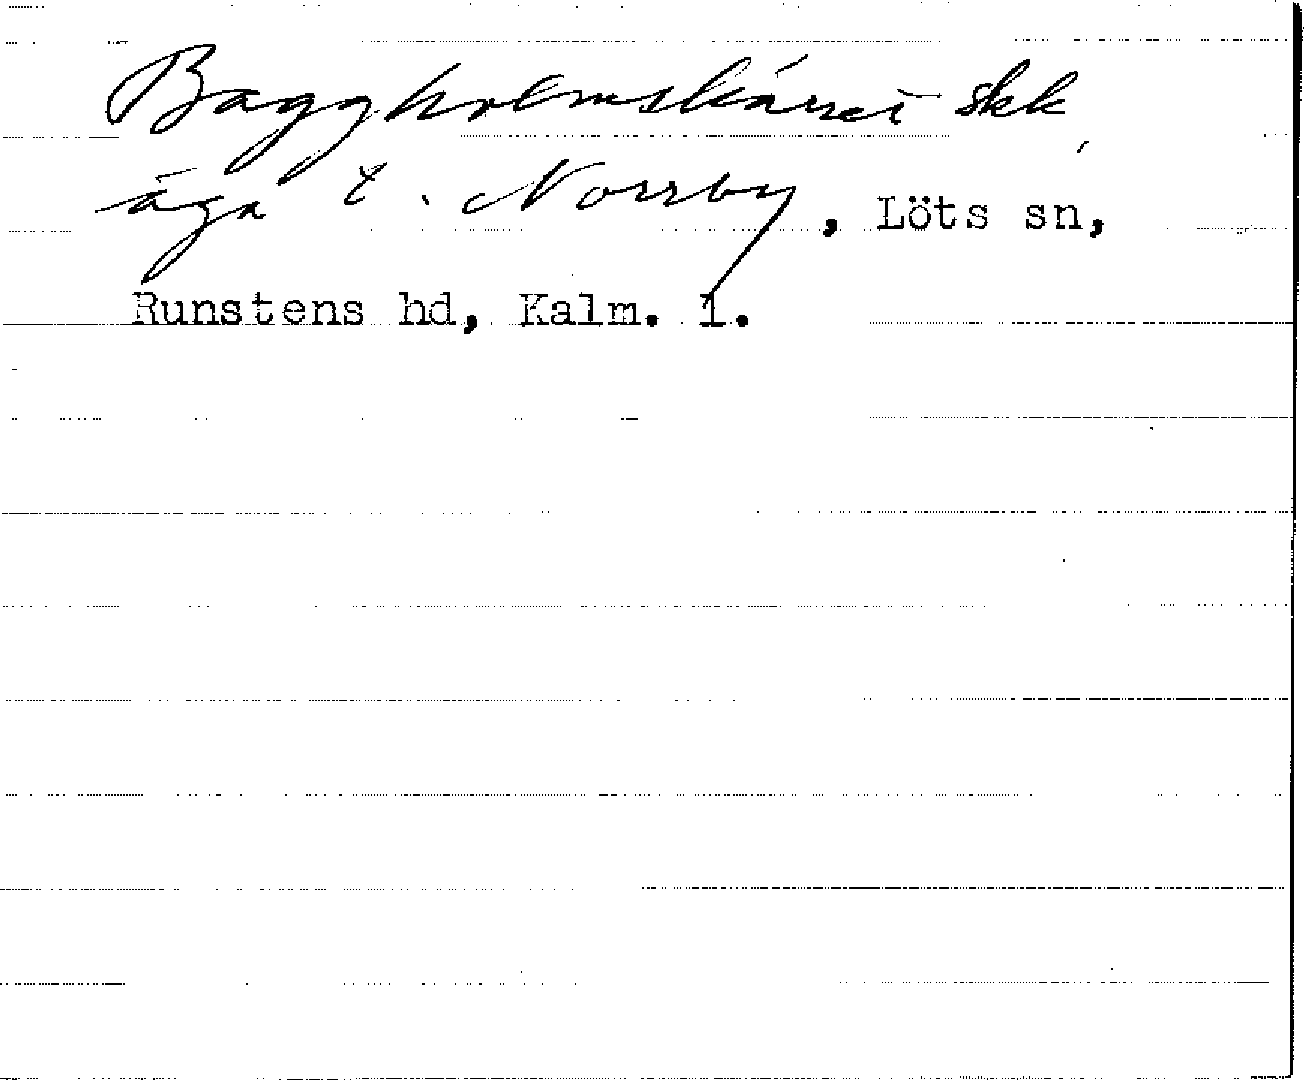 Baggholmskärret skk,
äga t. Norrby, Löts sn,
Runstens hd, Kalm. l.